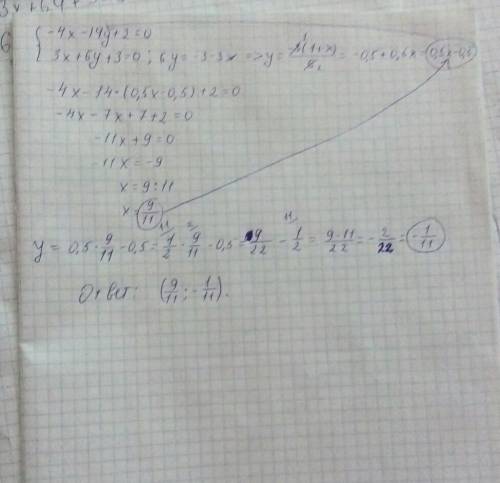 3x+6,4+
6) { -4x-14y+2=0
3x+6y+3=0; 6y=-3-3x => y= (1+x) = -0,5+0,5x = 0,5x-0,5
-4x-14·(0,5x-0,5)+2=0
-4x-7x+7+2=0
-11x+9=0
-11x=-9
x=9:11
x=9/11
y=0,5·9/11-0,5=1/2·9/11-0,5=9/22-1/2=9-11/22=-2/22=-1/11
Ответ: (9/11; -1/11).